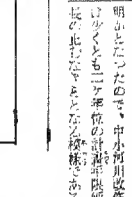 明かとなつたので、中小河川改修
は少くとも二ヶ年位の計畫年限延
長の止むなきこととなる模様である